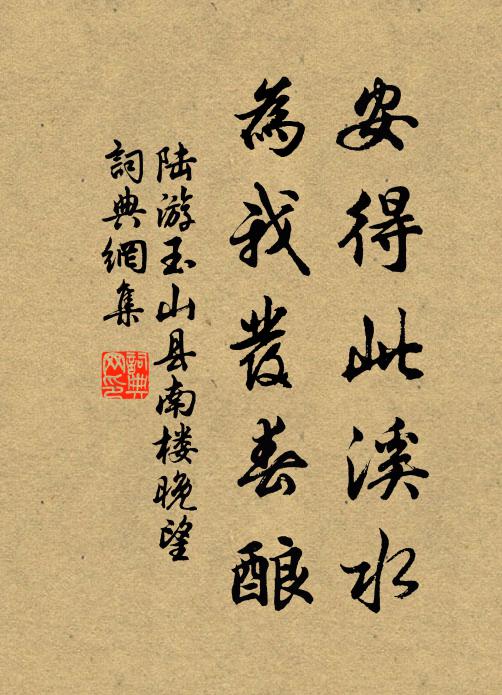 安得此溪水
為我發春酿
陆游玉山县南楼晚望
詞典網集
詞典网印